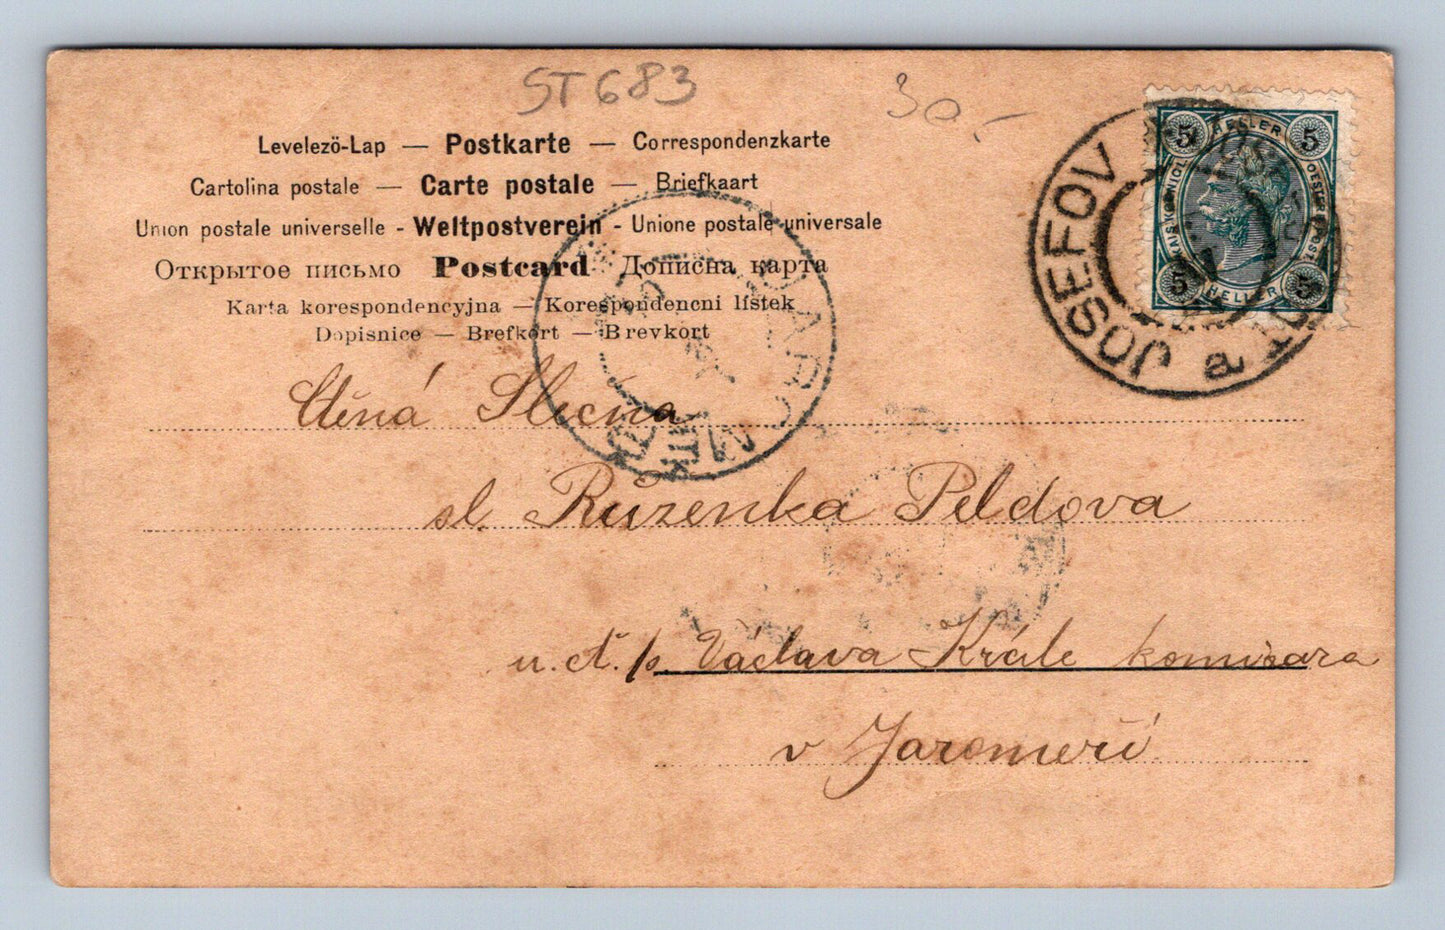 ST683
30.-
Levelezö-Lap — Postkarte — Correspondenzkarte
Cartolina postale — Carte postale — Briefkaart
Union postale universelle - Weltpostverein - Unione postale universale
Открытое письмо Postcard Дописна карта
Karta korespondencyjna — Korespondencni lístek
Dopisnice — Brefkort — Brevkort
5 HELLER 5
5 HELLER 5
JOSEFOV a
JAROMĚŘ
Ctěná Slečna
sl. Růzenka Peldova
u. ct. p. Václava Krále komisara
v Jaroměří